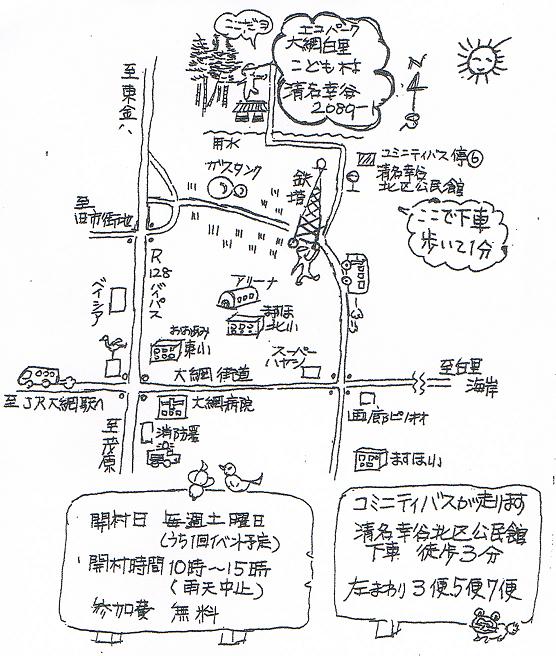 ここだヨ
エコパーク
大網白里
こども村
清名幸谷
2089-1
N
S
至東金八
用水
コミニティバス停⑥
清名幸谷
北区公民館
ガスタンク
鉄塔
至
旧市街地
ここで下車
歩いて1分
R128バイパス
ベイシア
アリーナ
ますほ
北小
おおあみ
東小
スーパー
ハヤシ
大網街道
至白里
海岸
至JR大網駅へ
大網病院
画廊ピリオ
至茂原
消防署
ますほ小
開村日 毎週土曜日
(うち1回イベント予定)
開村時間 10時〜15時
(雨天中止)
参加費 無料
コミニティバスが走ります
清名幸谷北区公民館
下車 徒歩3分
左まわり 3便5便7便